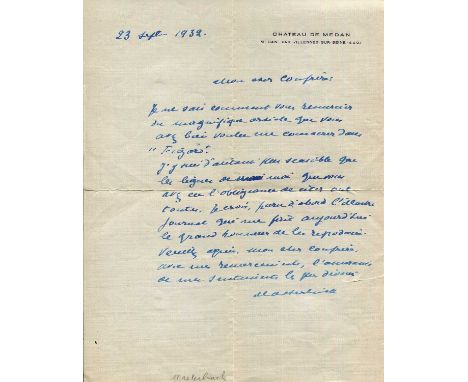 23 sept 1932.
CHATEAU DE MEDAN
MEDAN, PAR VILLENNES-SUR-SEINE
Mon cher Confrère,
Je ne sais comment vous remercier
du magnifique article que vous
avez bien voulu me consacrer dans
"Figaro".
J'y suis d'autant plus sensible que
les lignes de moi que vous
avez eu l'obligeance de citer ont
paru d'abord l'illustre
journal qui me fait aujourd'hui
le grand honneur de les reproduire.
Veuillez agréer, mon cher Confrère,
avec mes remerciements, l'assurance
de mes sentiments les plus
Maeterlinck
Maeterlinck